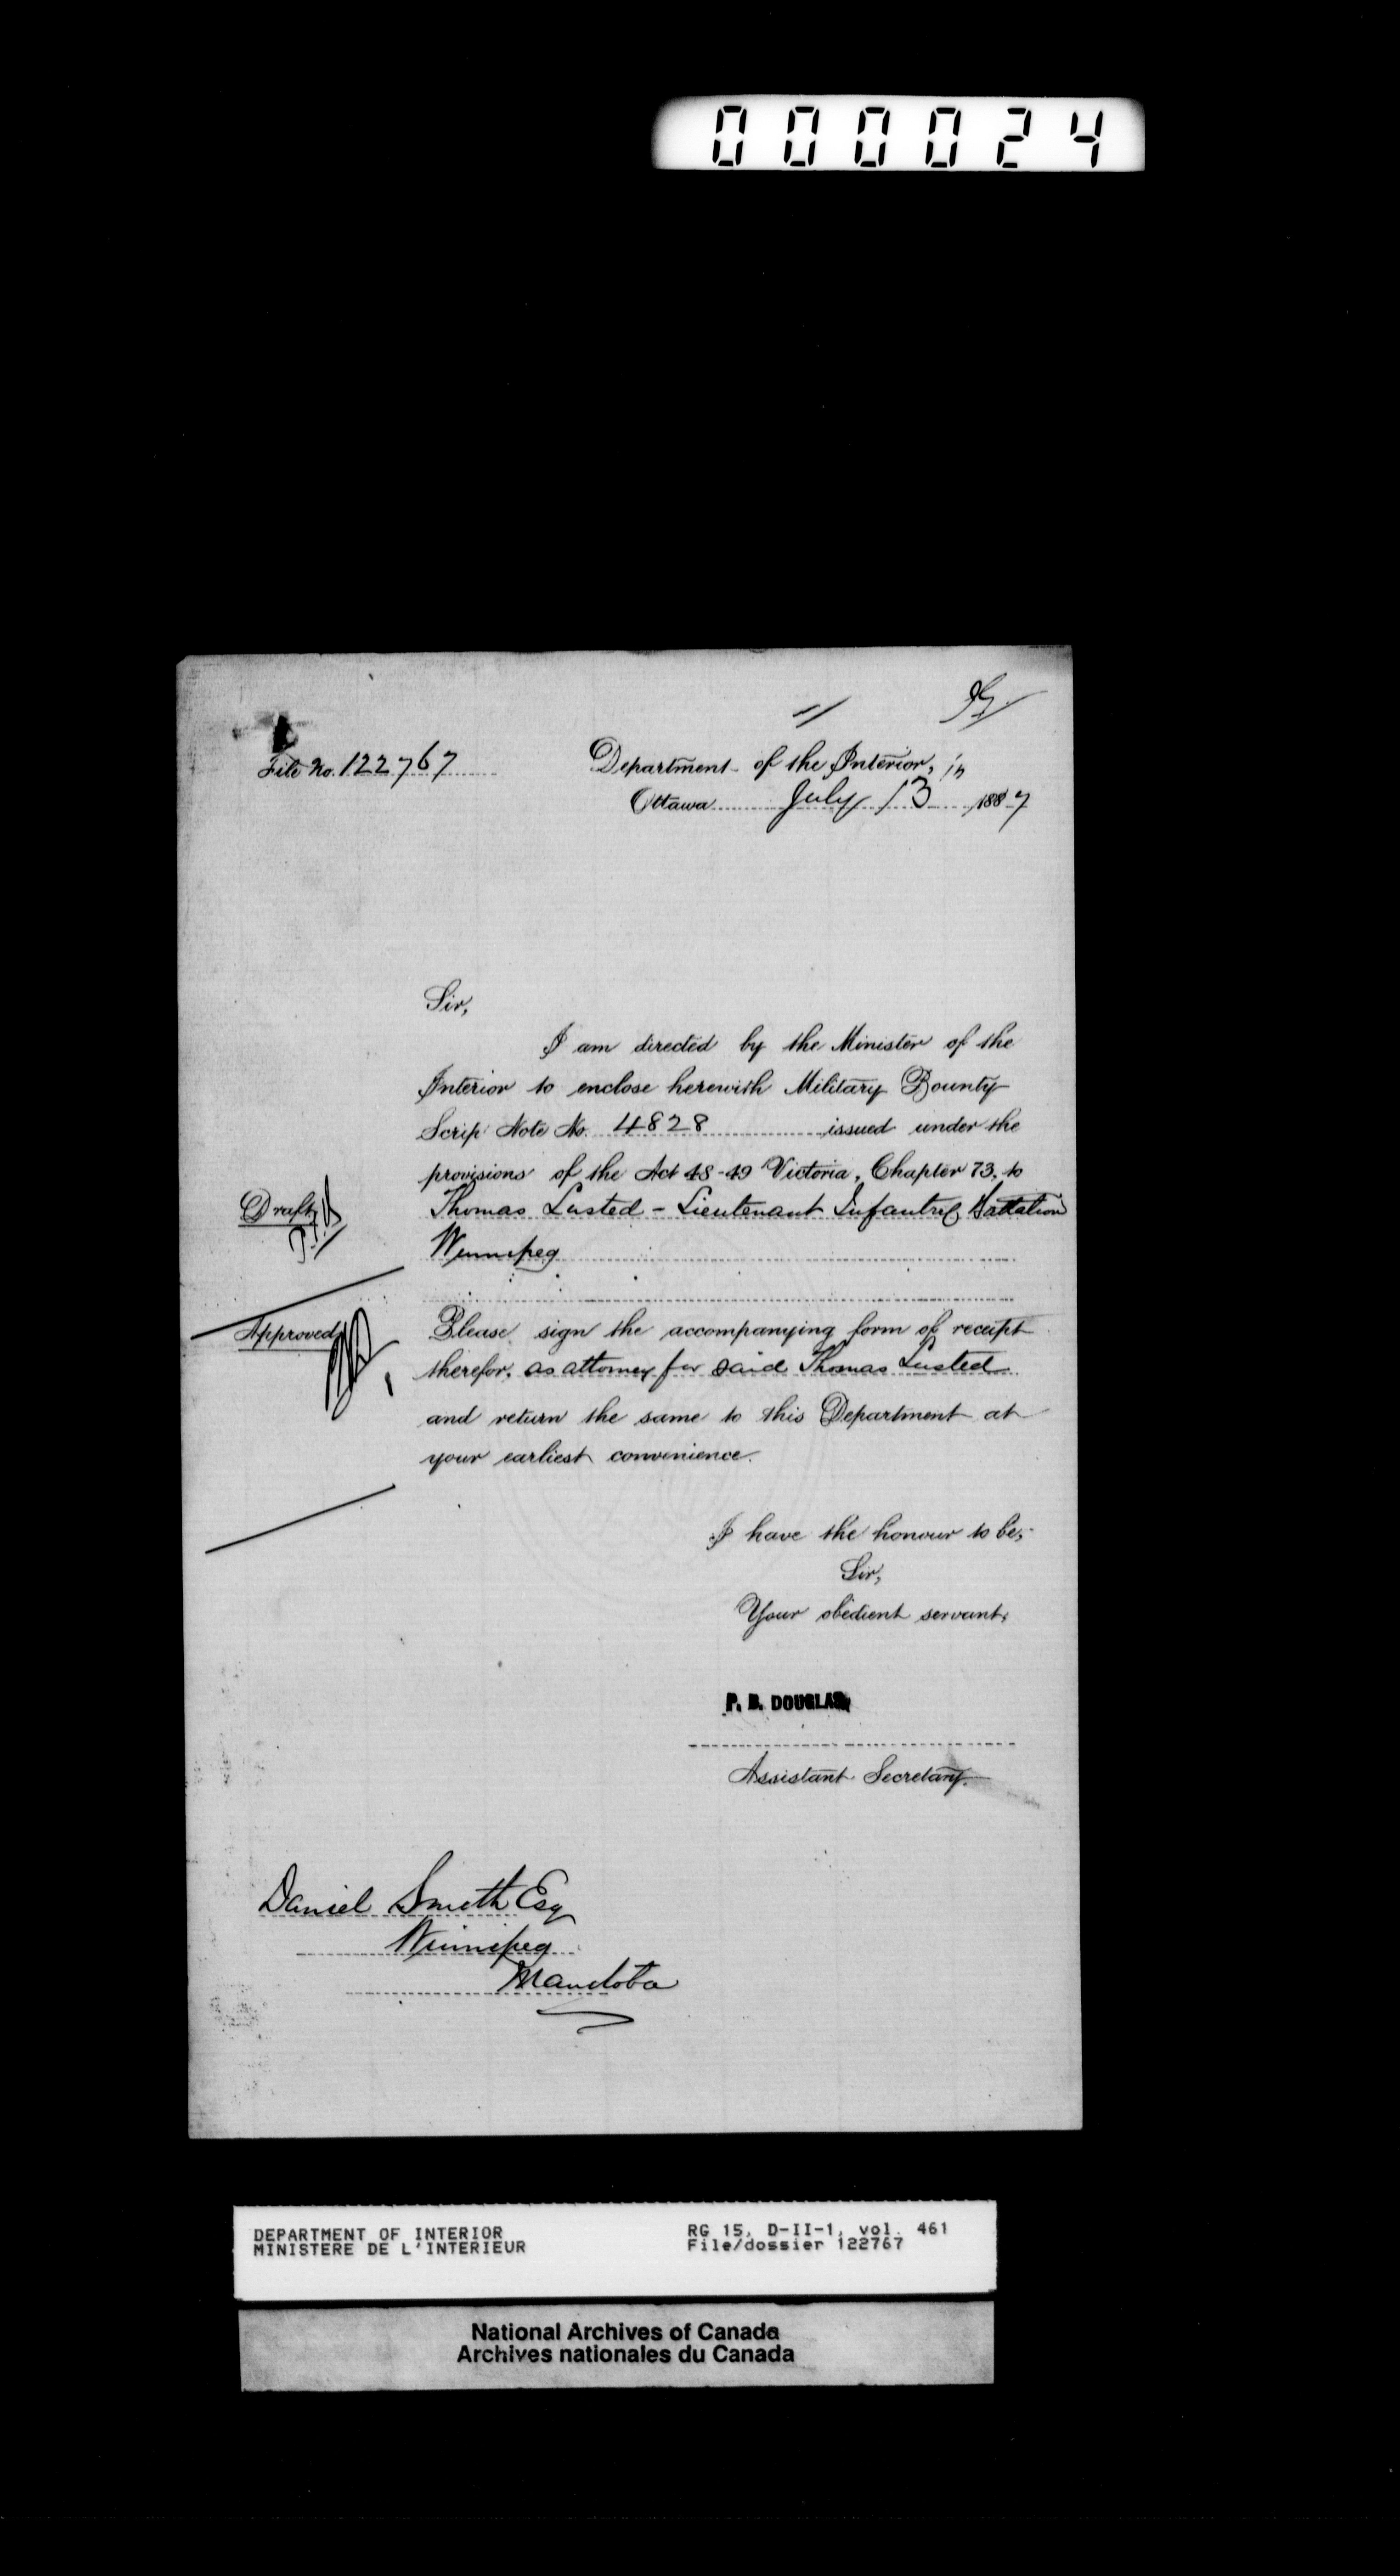 000024
File No. 122767
Department of the Interior,
Ottawa July 13 1887
Sir,
I am directed by the Minister of the
Interior to enclose herewith Military Bounty
Scrip Note No. 4828 issued under the
provisions of the Act 48-49 Victoria, Chapter 73, to
Draft
Thomas Lusted - Lieutenant Infantry Battalion
Winnipeg
Approved
Please sign the accompanying form of receipt
therefor, as attorney for said Thomas Lusted
and return the same to this Department at
your earliest convenience.
I have the honour to be,
Sir,
Your obedient servant,
P. B. DOUGLAS,
Assistant Secretary.
Daniel Smith Esq
Winnipeg
Manitoba
DEPARTMENT OF INTERIOR
MINISTERE DE L'INTERIEUR
RG 15, D-II-1, vol. 461
File/dossier 122767
National Archives of Canada
Archives nationales du Canada